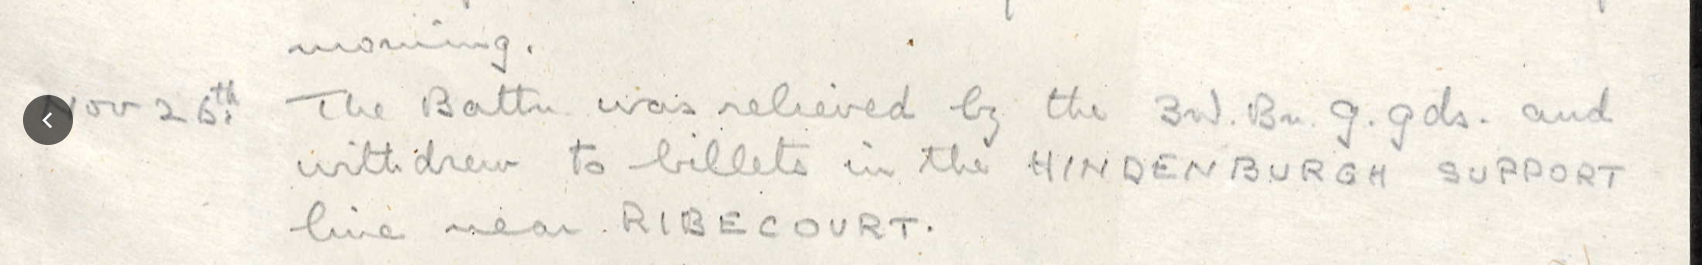 morning.
Nov 26th. The Battn was relieved by the 3rd. Bn. G. Gds. and
withdrew to billets in the HINDENBURGH SUPPORT
line near RIBECOURT.